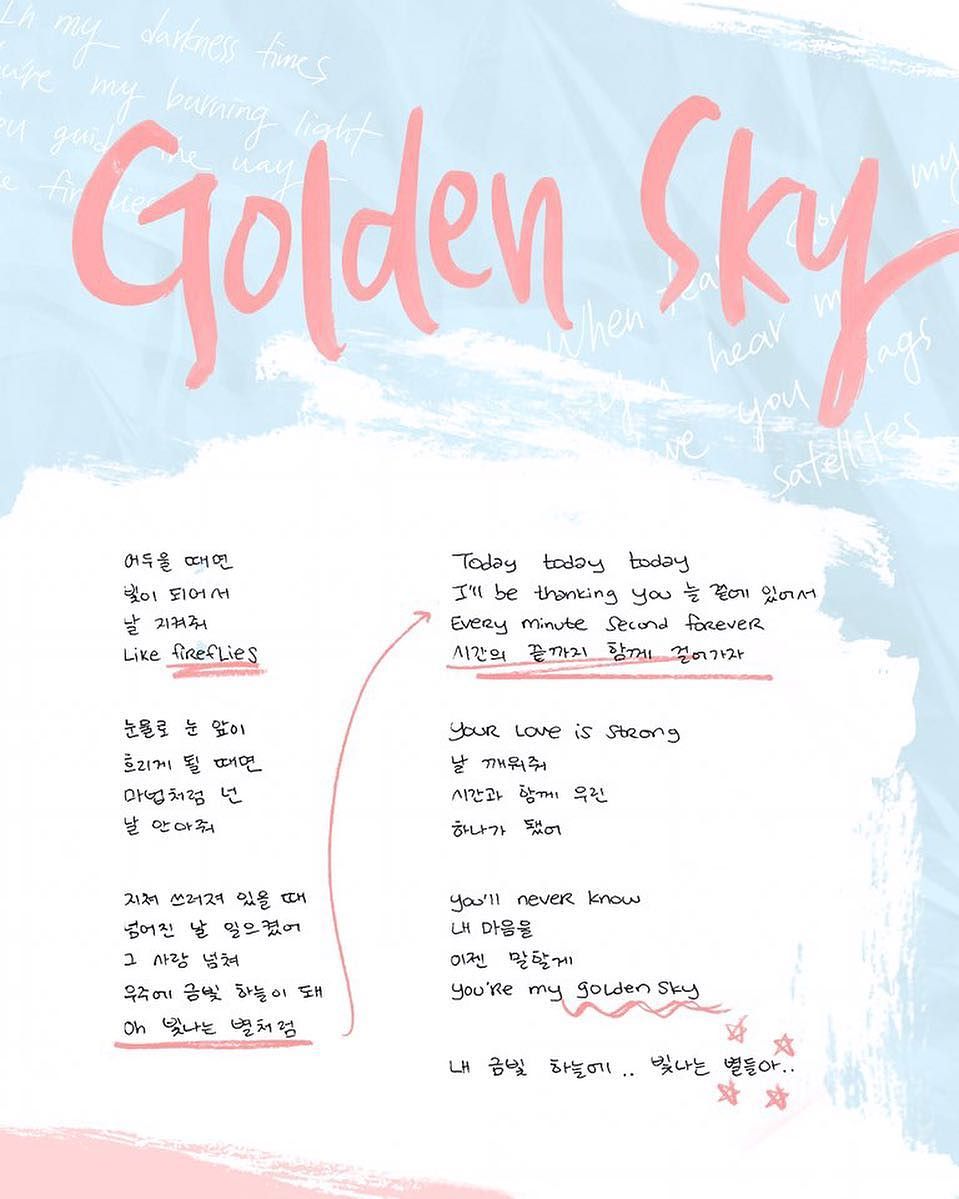 In my darkness times
you're my burning light
you guide the way
fireflies
Golden Sky
my
When
you hear
love you
satellites
어두울 때면
빛이 되어서
날 지켜줘
Like fireflies
눈물로 눈 앞이
흐리게 될 때면
마법처럼 넌
날 안아줘
지쳐 쓰러져 있을 때
넘어진 날 일으켰어
그 사랑 넘쳐
우주에 금빛 하늘이 돼
Oh 빛나는 별처럼
Today today today
I'll be thanking you 늘 곁에 있어서
Every minute second forever
시간의 끝까지 함께 걸어가자
Your love is strong
날 깨워줘
시간과 함께 우린
하나가 됐어
you'll never know
내 마음을
이젠 말할게
you're my golden sky
내 금빛 하늘에.. 빛나는 별들아..